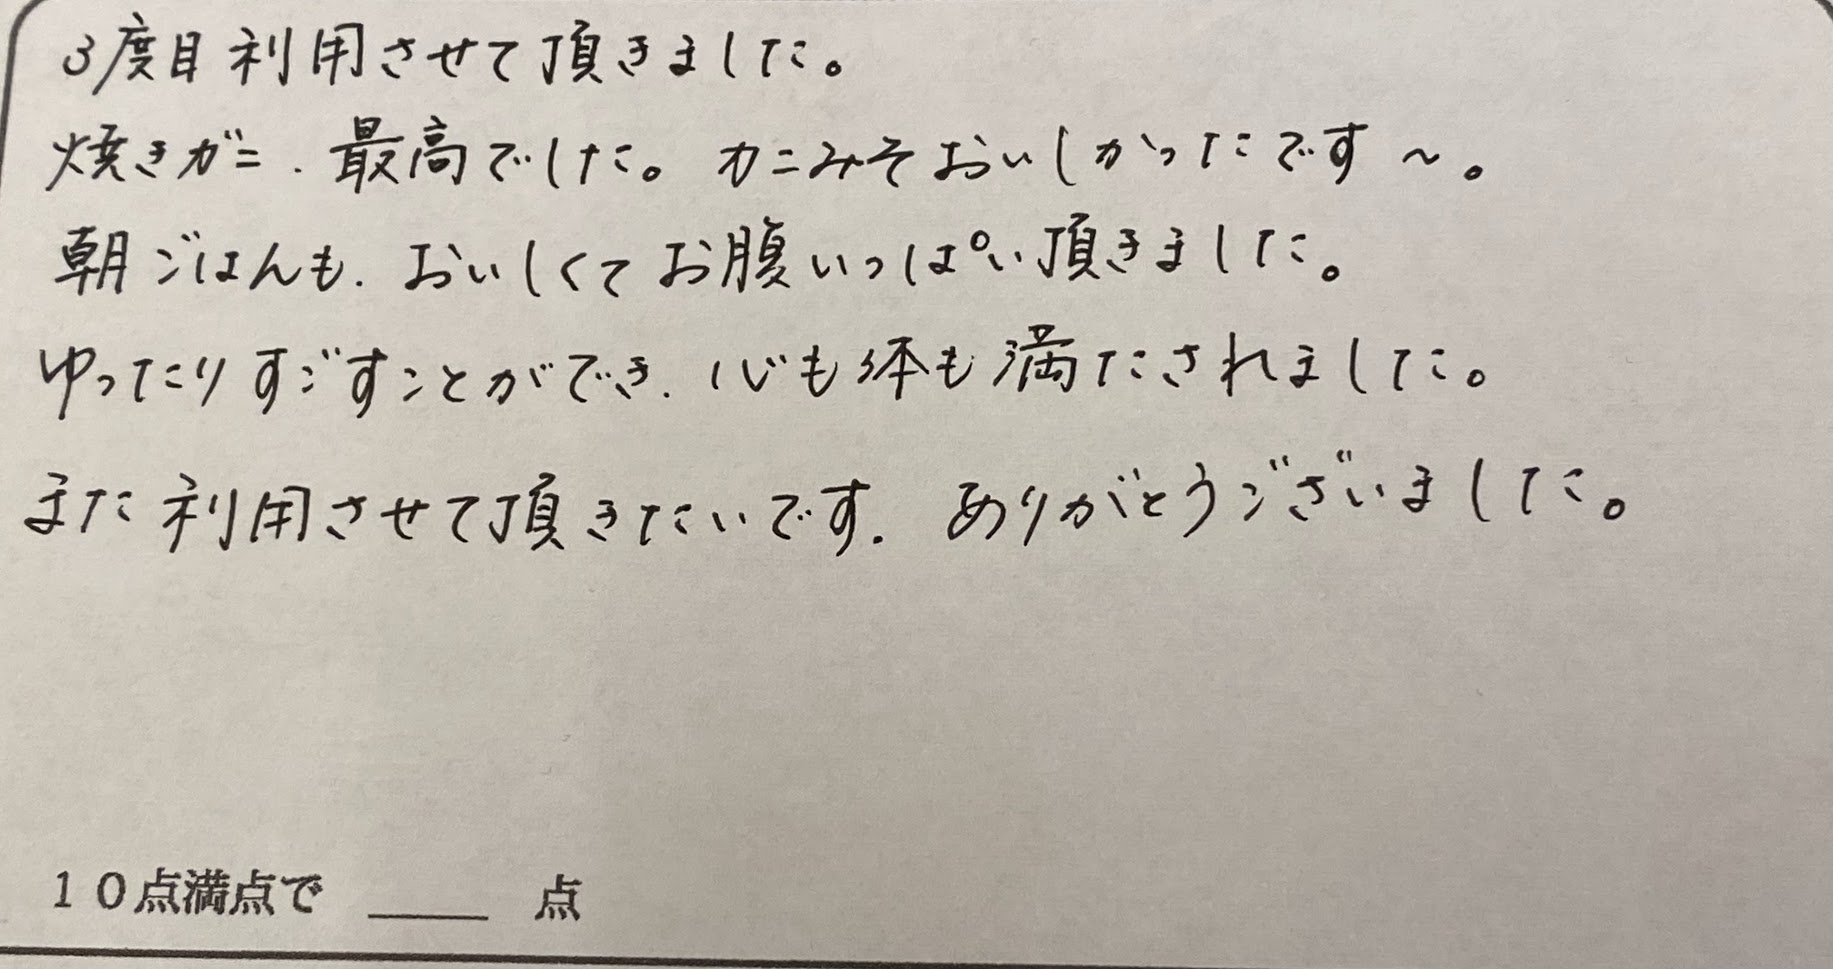 3度目利用させて頂きました。
焼きガニ、最高でした。カニみそおいしかったです～。
朝ごはんも、おいしくてお腹いっぱい頂きました。
ゆったりすごすことができ、心も体も満たされました。
また利用させて頂きたいです。ありがとうございました。
10点満点で ____ 点